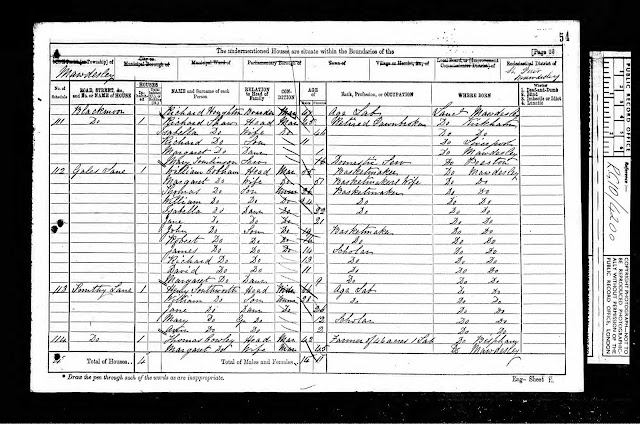 54
The undermentioned Houses are situate within the Boundaries of the [Page 2
Township] of
Municipal Ward of
Parliamentary Borough of
Town of
Village or Hamlet, &c., of
Local Board, or [Improvement Commissioners District] of
Ecclesiastical District of
Mawdesley
No. of Schedule
ROAD, STREET, &c., and No. or NAME of HOUSE
HOUSES
NAME and Surname of each Person
RELATION to Head of Family
CONDITION
AGE of
Rank, Profession, or OCCUPATION
WHERE BORN
Whether 1. Deaf-and-Dumb 2. Blind 3. Imbecile or Idiot 4. Lunatic
Blackmoor Richard Boarder Mar Ag Lab Lanct Mawdesley
111 Do 1 Richard Shaw Head Mar Retired Pawnbroker Do
Isabella Do Wife Do 44 Do Do
Richard Do Son 11 Do Liverpool
Margaret Do Daur 1 Do Mawdesley
Mary Tomlinson Serv 16 Domestic Serv Do Preston
112 Gales Lane 1 William Cobham Head Mar 55 Basketmaker Do Mawdesley
Margaret Do Wife Do 51 Basketmakers Wife Do Do
Thomas Do Son Unm 26 Basketmaker Do Do
William Do Do Do 24 Do Do Do
Isabella Do Daur Do 22 Do Do Do
Jane Do Do Do 21 Do Do
John Do Son Do 19 Basketmaker Do Do
Robert Do Do Do Do Do Do
James Do Do 14 Scholar Do Do
Richard Do Do 13 Do Do Do
David Do Do 11 Do Do Do
Margaret Do Daur 9 Do Do Do
113 Smithy Lane 1 Henry Southworth Head Widr Ag Lab Do Do
William Do Son Unm 28 Do Do Do
Jane Do Daur Do 26 Do Do
Mary Do Do 12 Scholar Do Do
Ann Do Do 2 Do Do
114 Do 1 Thomas Cowley Head Mar 42 Farmer of acres 1 Lab Do Bispham
Margaret Do Wife Mar 45 Do Mawdesley
Total of Houses.. 4
Total of Males and Females.. 14 11
* Draw the pen through such of the words as are inappropriate.
Eng—Sheet E.
PUBLIC RECORD OFFICE
Reference :—
RG10/4200
COPYRIGHT PHOTOGRAPH—NOT TO BE REPRODUCED PHOTOGRAPHICALLY WITHOUT PERMISSION OF THE PUBLIC RECORD OFFICE, LONDON